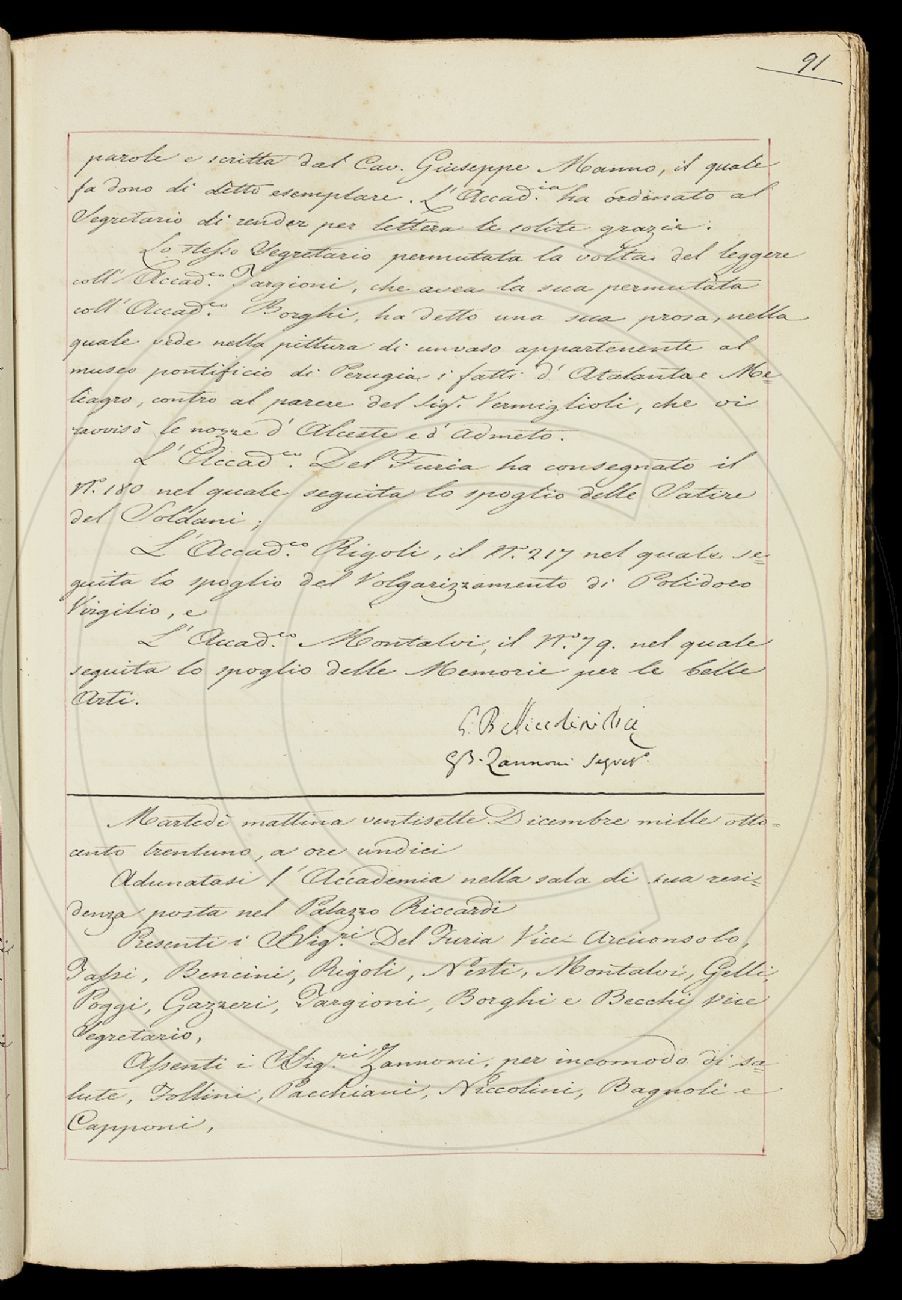 91
parole e scritta dal Cav. Giuseppe Manno, il quale
fa dono di detto esemplare. L'Accad.ia ha ordinato al
Segretario di render per lettera le solite grazie.
Lo stesso Segretario permutata la volta del leggere
coll'Accad.co Targioni, che avea la sua permutata
coll'Accad.co Borghi, ha detto una sua prosa, nella
quale vede nella pittura di un vaso appartenente al
museo pontificio di Perugia i fatti d'Atalanta e Me=
leagro, contro al parere del Sig.r Vermiglioli, che vi
ravvisò le nozze d'Alceste e d'Admeto.
L'Accad.co Del Furia ha consegnato il
N.o 180 nel quale seguita lo spoglio delle Satire
del Soldani;
L'Accad.co Rigoli, il N.o 217 nel quale se=
guita lo spoglio del Volgarizzamento di Polidoro
Virgilio, e
L'Accad.co Montalvi, il N.o 79. nel quale
seguita lo spoglio delle Memorie per le belle
Arti.
G. B. Niccolini
GB. Zannoni Segret.o
Martedì mattina ventisette Dicembre mille otto=
cento trentuno, a ore undici
Adunatasi l'Accademia nella sala di sua resi=
denza posta nel Palazzo Riccardi
Presenti i SSig.ri Del Furia Vice-Arciconsolo,
Tassi, Bencini, Rigoli, Nesti, Montalvi, Gelli,
Poggi, Gazzeri, Targioni, Borghi e Becchi Vice
Segretario,
Assenti i SSig.ri Zannoni, per incomodo di sa=
lute, Follini, Pacchiani, Niccolini, Bagnoli e
Capponi,